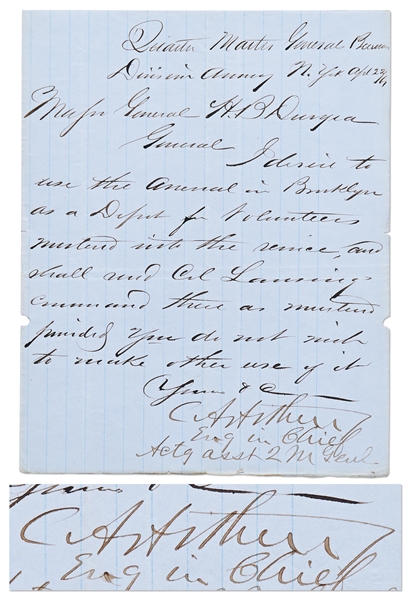 Quarter Master General Bureau
Division Armory N. York Apl 22/61
Major General H. B Duryea
General I desire to
use the Arsenal in Brooklyn
as a Depot for Volunteers
mustered into the service, and
shall send Col Lansings
command there as mustered
provided you do not wish
to make other use of it
Yours &c
C A Arthur
Eng in Chief
Actg asst 2 M Genl.
Yours &c
C A Arthur
Eng in Chief